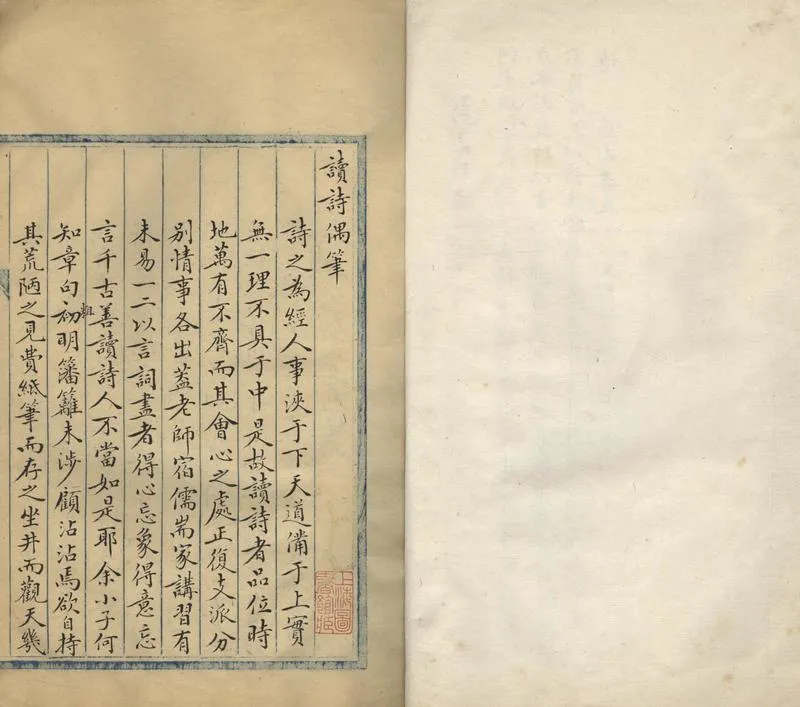 讀詩偶筆
詩之為經人事浹于下天道備于上實
無一理不具于中是故讀詩者品位時
地萬有不齊而其會心之處正復支派分
別情事各出蓋老師宿儒耑家講習有
未易一二以言詞盡者得心忘象得意忘
言千古善讀詩人不當如是耶余小子何
知章句初明籓籬未涉顧沾沾焉欲自持
粗
其荒陋之見費紙筆而存之坐井而觀天幾
上海圖
書館藏